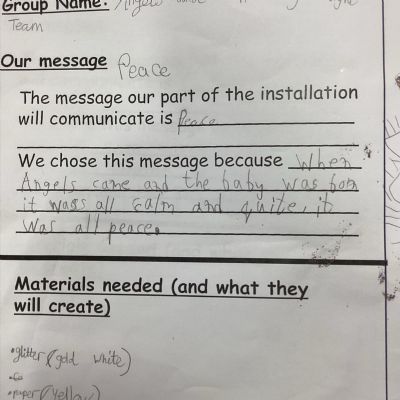 Group Name:
Team
Our message Peace
The message our part of the installation
will communicate is Peace
We chose this message because When
Angels came and the baby was born
it wass all calm and quite, it
was all peace.
Materials needed (and what they
will create)
•glitter (gold white)
•paper (yellow)